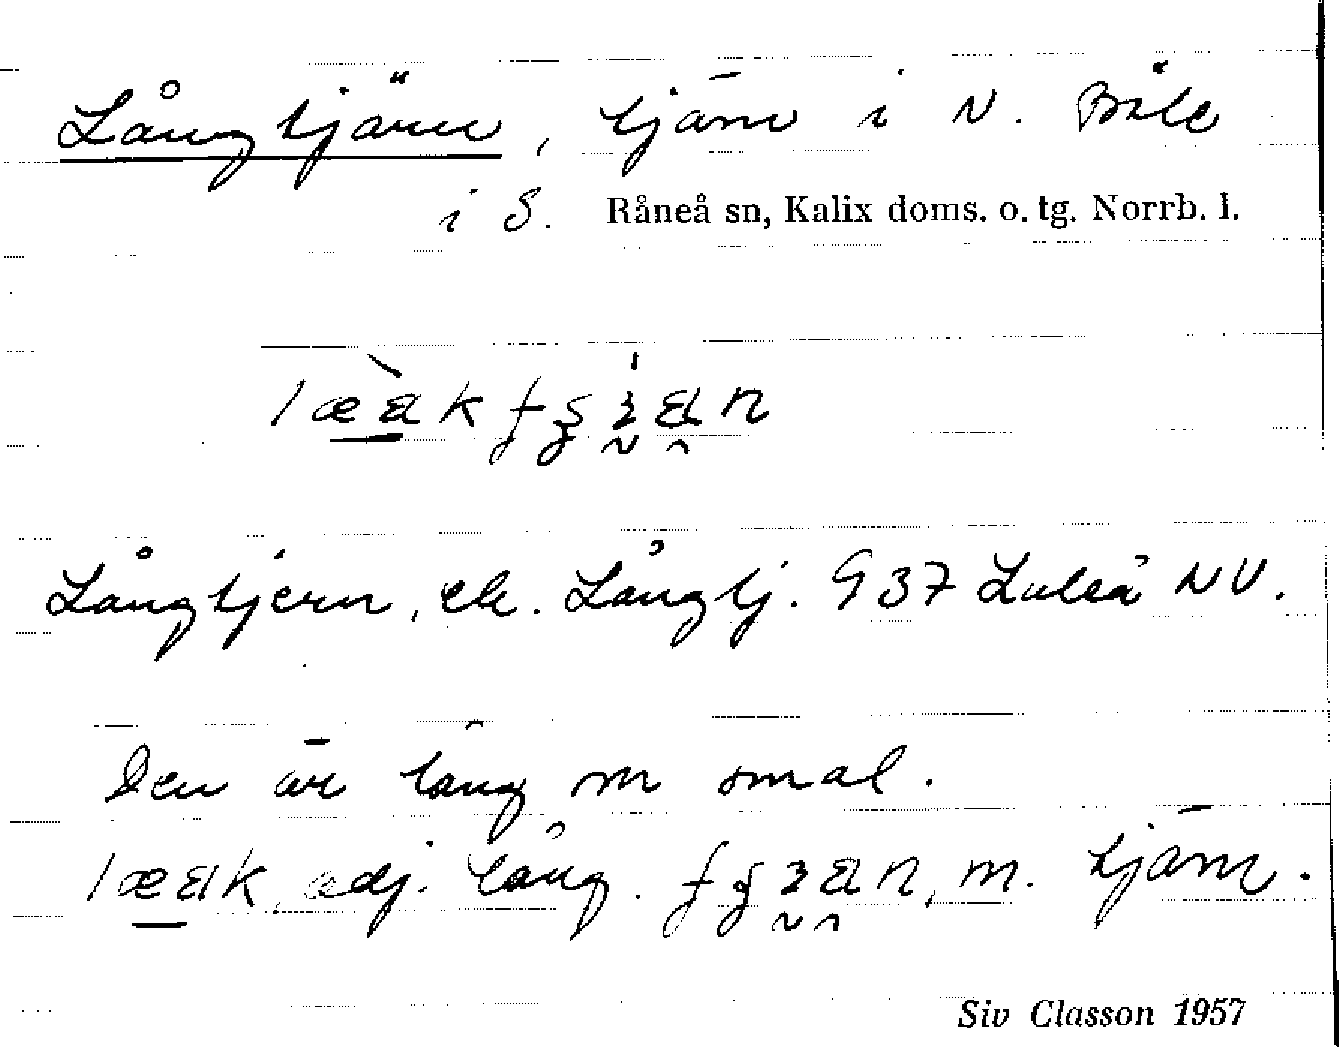 Långtjärn, tjärn i N. Bäle
i S. Råneå sn, Kalix doms. o. tg. Norrb. l.
Långtjern, ek. Långtj. 937 Luleå NV.
Den är lång o smal.
adj. lång. m. tjärn.
Siv Classon 1957